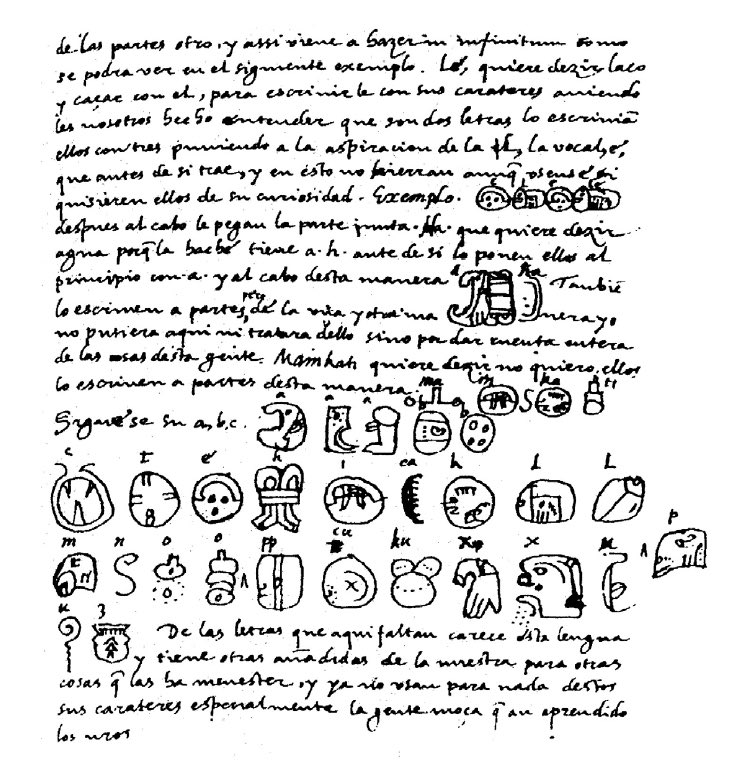 de las partes otro, y assi viene a hazer in infinitum como
se podra ver en el siguiente exemplo. Lé, quiere dezir laço
y caçar con el, para escrivirle con sus carateres aviendo
les nosotros hecho entender que son dos letras lo escrivian
ellos con tres puniendo a la aspiracion de la l, la vocal, é,
que antes de si trae, y en esto no hierran aunq̃, usense, si
quisieren ellos de su curiosidad. Exemplo.
despues al cabo le pegan la parte junta. Ha. que quiere dezir
agua porq̃ la haché tiene a. h. ante de si lo ponen ellos al
principio con a. y al cabo desta manera a ha Tambiē
lo escriven a partes, pero de la una y otra ma nera yo
no pusiera aqui ni tratara dello sino por dar cuenta entera
de las cosas desta gente. Mainkati quiere dezir no quiero, ellos
lo escriven a partes desta manera ma i n ka ti
Siguese su a, b, c. a a a b b
c t é h i ca k l l
m n o o pp cu ku x x u p
u z De las letras que aqui faltan carece esta lengua
y tiene otras añadidas de la nuestra para otras
cosas q̃ las ha menester, y ya no usan para nada destos
sus carateres especialmente la gente moça q̃ an aprendido
los nros